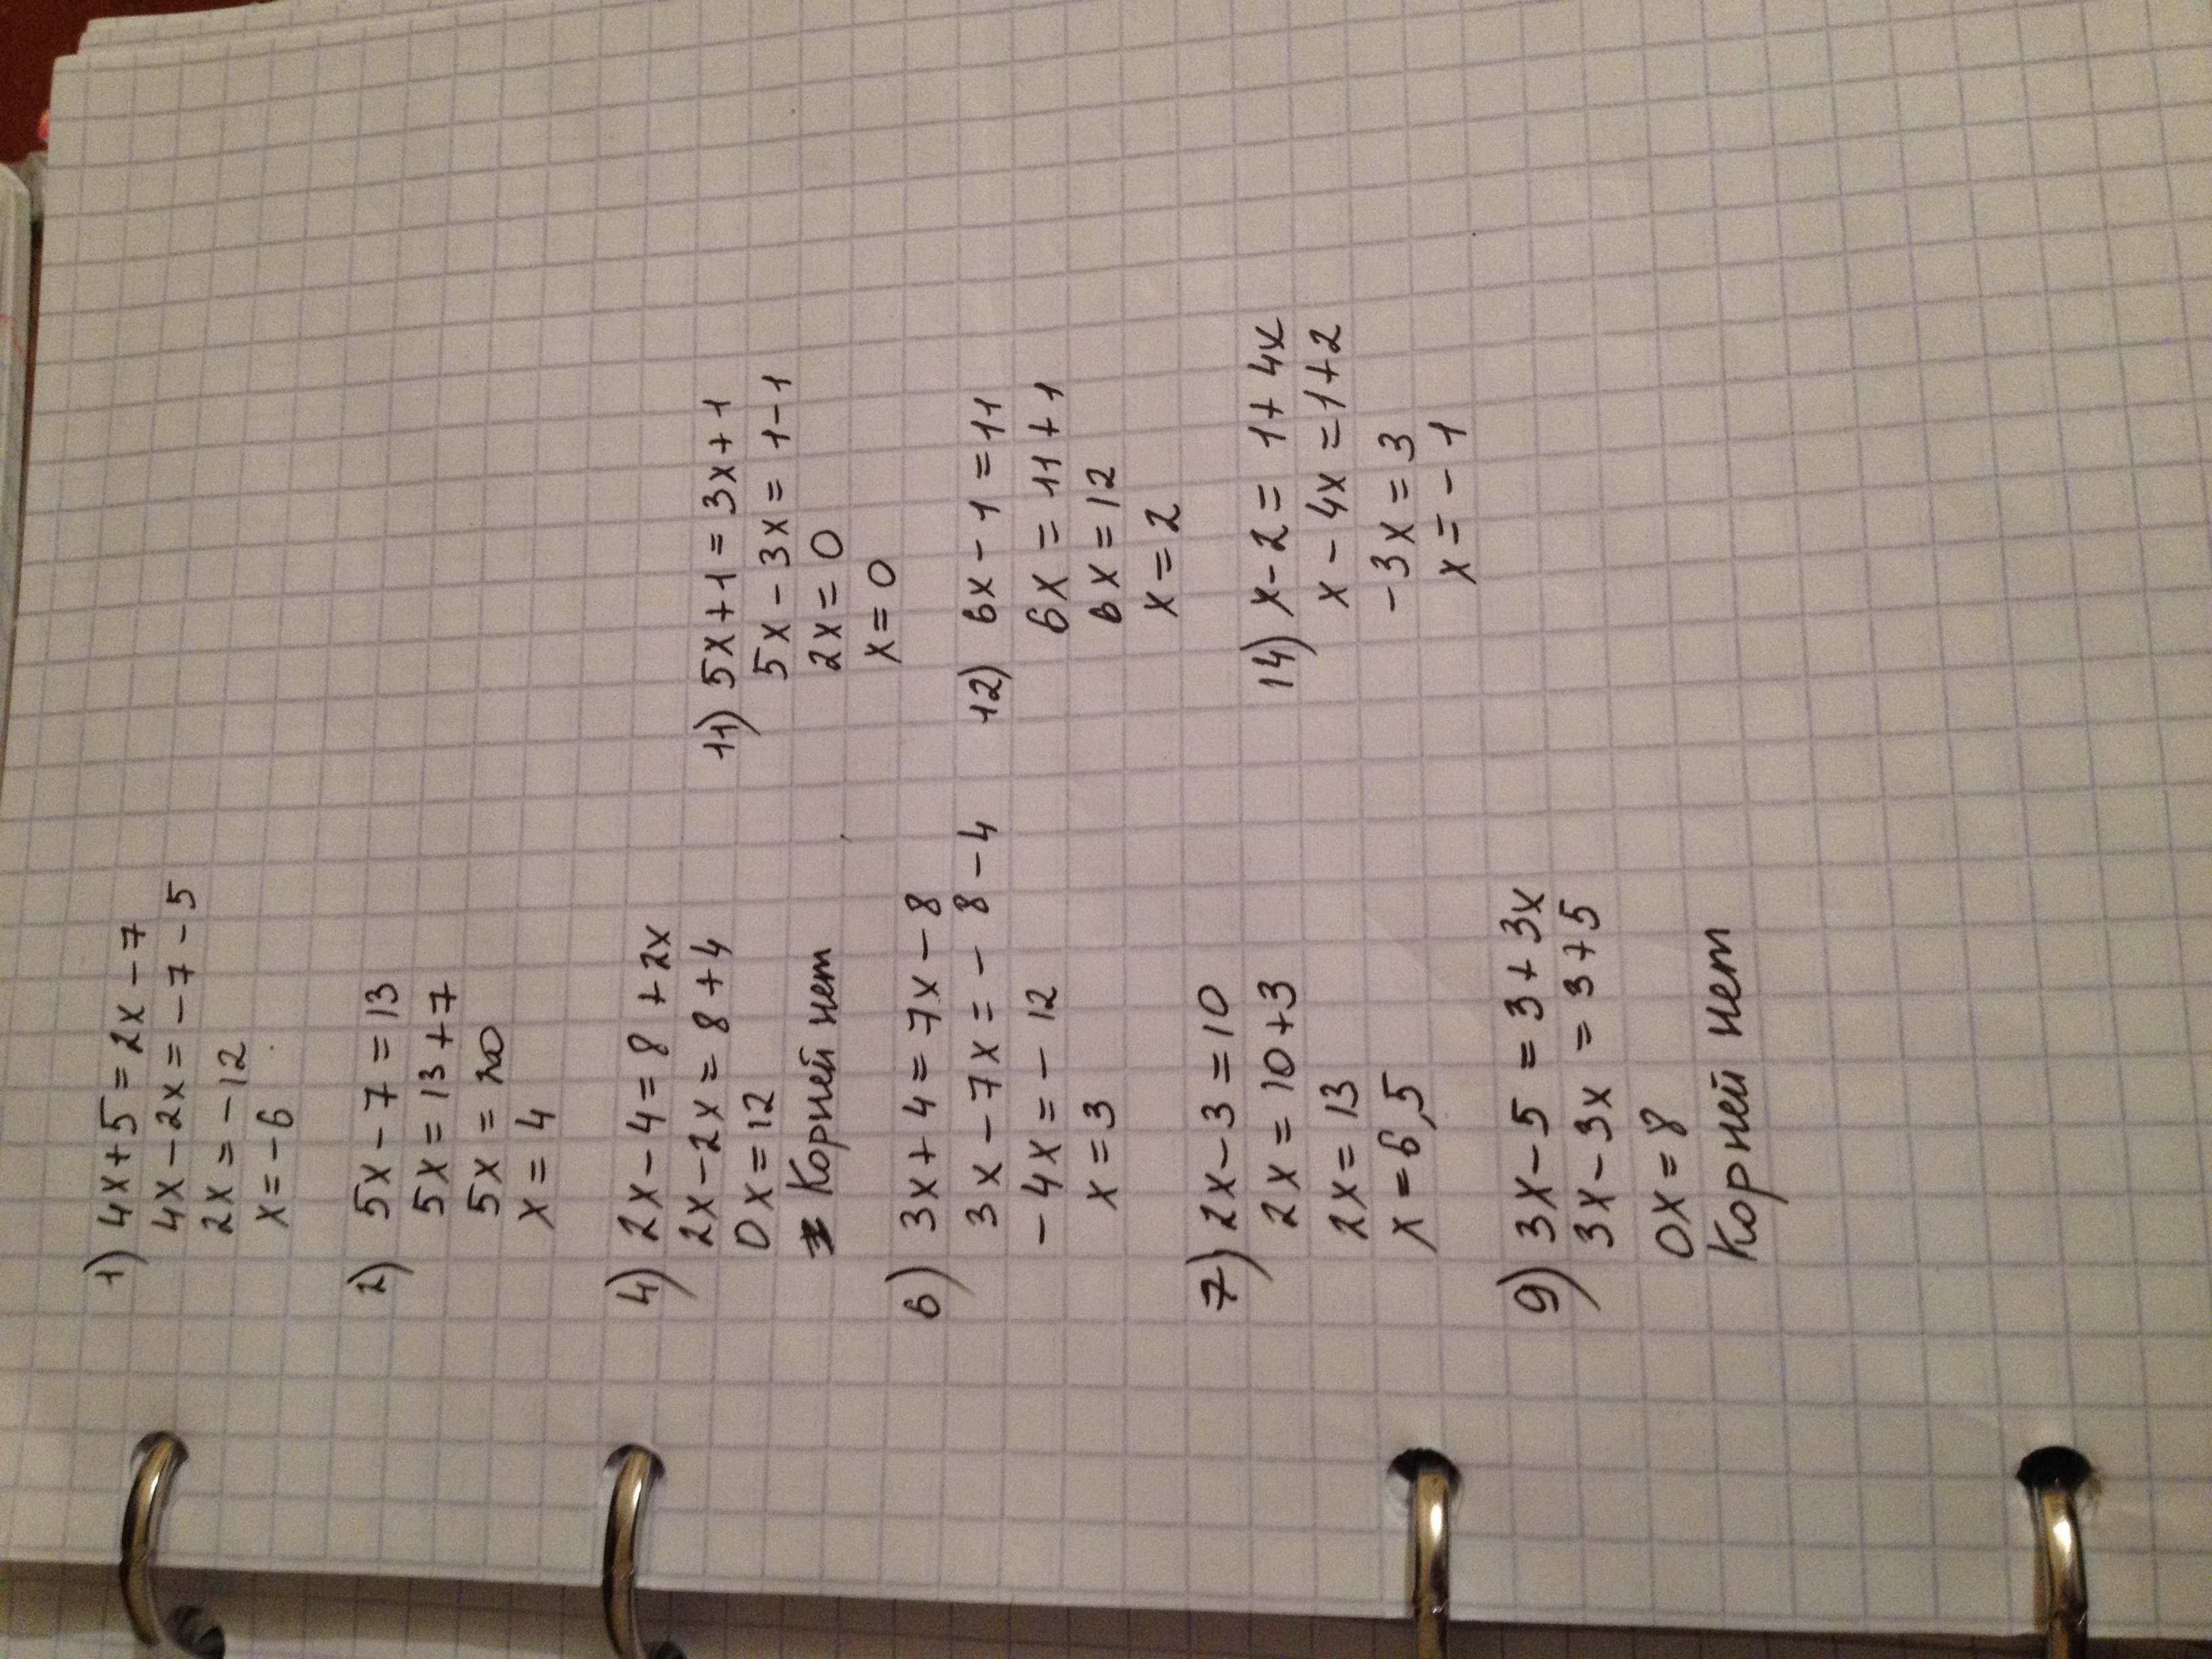 1) 4x+5=2x-7
4x-2x=-7-5
2x=-12
x=-6
2) 5x-7=13
5x=13+7
5x=20
x=4
4) 2x-4=8+2x
2x-2x=8+4
0x=12
Корней нет
6) 3x+4=7x-8
3x-7x=-8-4
-4x=-12
x=3
7) 2x-3=10
2x=10+3
2x=13
x=6,5
9) 3x-5=3+3x
3x-3x=3+5
0x=8
Корней нет
11) 5x+1=3x+1
5x-3x=1-1
2x=0
x=0
12) 6x-1=11
6x=11+1
6x=12
x=2
14) x-2=1+4x
x-4x=1+2
-3x=3
x=-1